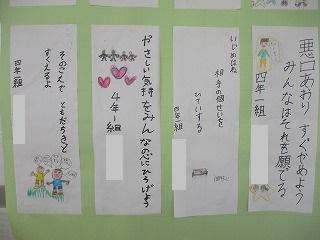 悪口あおり すぐやめよう
みんなはそれを願てる
四年一組
いじめはね
相手の個せいを
ひていする
四年一組
やさしい気持をみんなの心にひろげよう
4年1組
そのこえで ともだちきっと
すくえるよ
四年一組